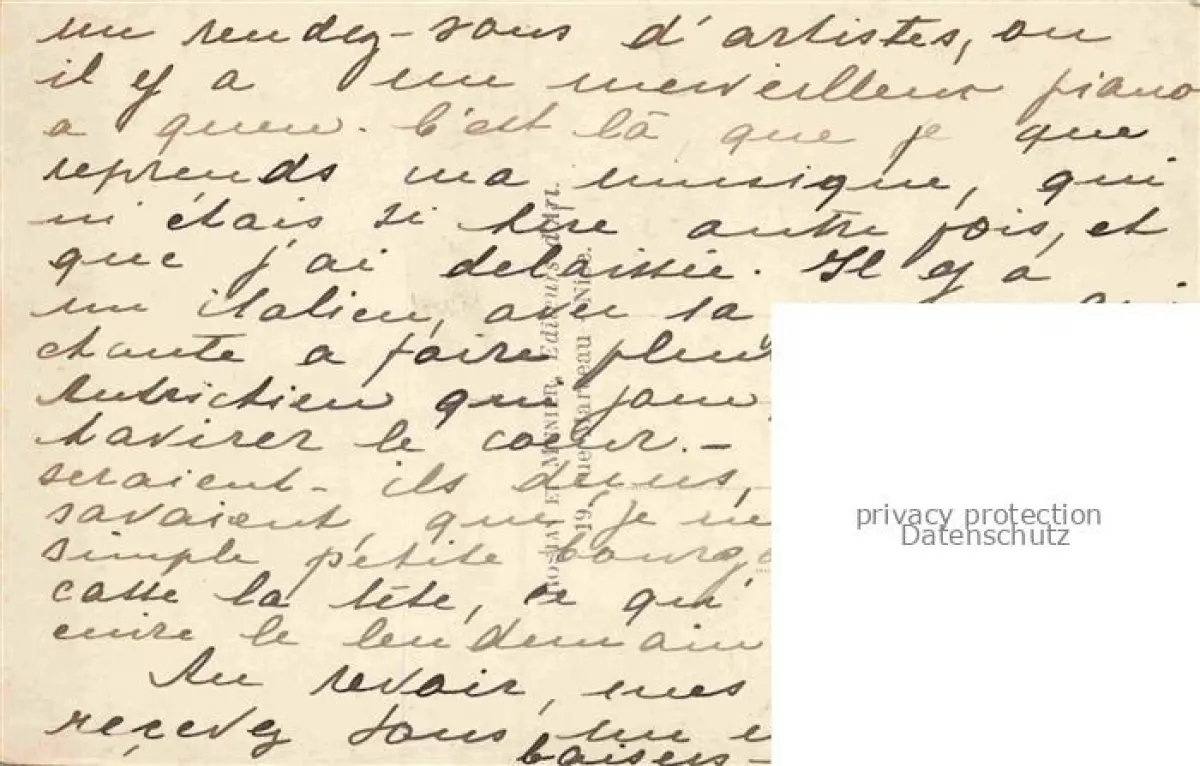 un rendez-vous d'artistes, ou
il y a un merveilleux piano
a queu. C'est là que je que
reprends ma musique, qui
m'étais si here autre fois, et
que j'ai delaissée. Il y a
un italien, avec sa
chante a faire pleu
Autrichien qui jou
chavirer le coeur. -
seraient-ils déçus,
savaient, que je ne
simple petite bourgo
casse la tête, ce qui
cuire le lendemain
Au revoir, mes
reçevez tous un
baisers -
MUNIER, Editeurs d'Art.
19, Nice.
privacy protection
Datenschutz